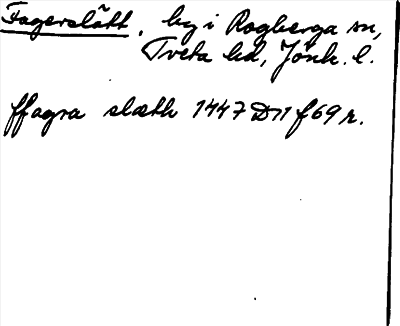 Fagerslätt, by i Rogberga sn,
Tveta hd, Jönk. l.
ffagra slæth 1447 D11 f69 r.